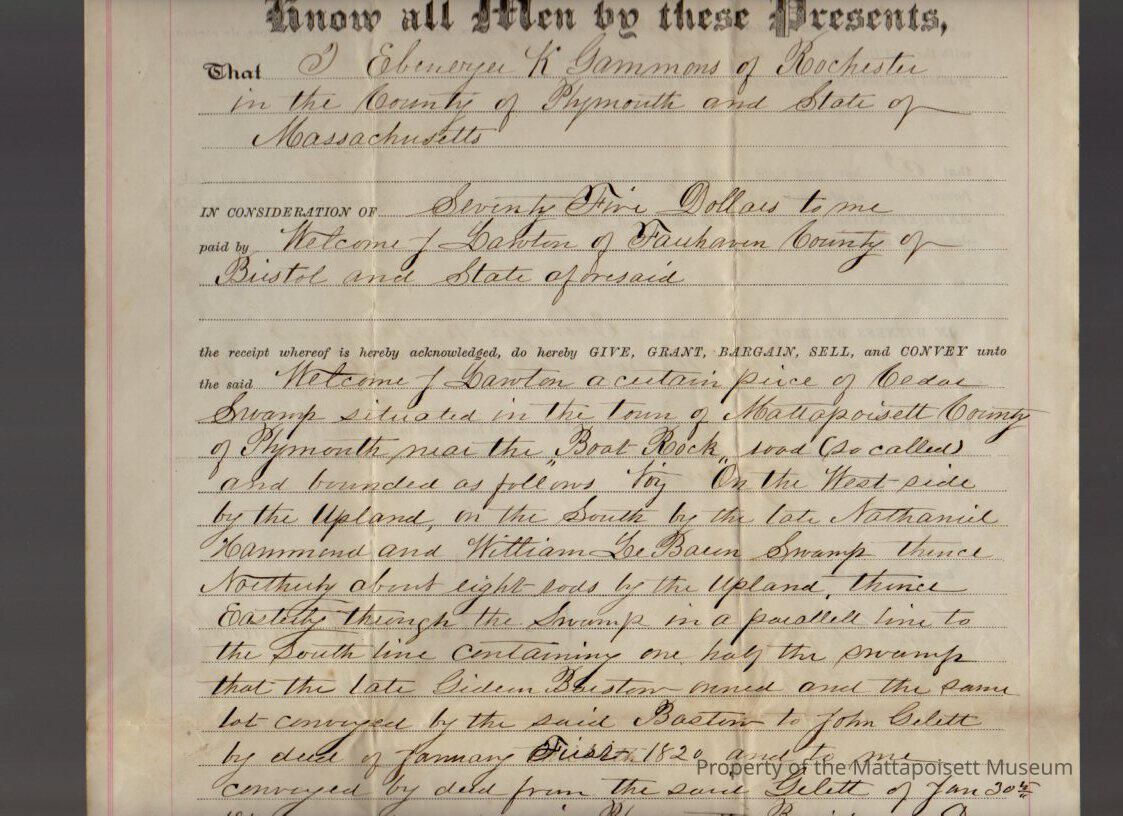 Know all Men by these Presents,
That I Ebenezer K Gammons of Rochester
in the County of Plymouth and State of
Massachusetts
IN CONSIDERATION OF Seventy Five Dollars to me
paid by Welcome J Lawton of Fairhaven County of
Bristol and State aforesaid
the receipt whereof is hereby acknowledged, do hereby GIVE, GRANT, BARGAIN, SELL, and CONVEY unto
the said Welcome J Lawton a certain piece of Cedar
Swamp situated in the town of Mattapoisett County
of Plymouth near the "Boat Rock" road (so called)
and bounded as follows Viz "On the West side
by the Upland, on the South by the late Nathaniel
Hammond and William Le Baron Swamp thence
Northerly about eight rods by the Upland, thence
Easterly through the Swamp in a parallell line to
the South line containing one half the swamp
that the late Gideon Barstow owned and the same
lot conveyed by the said Bastow to John Gelett
by deed of January First 1820 and to me
conveyed by deed from the said Gelett of Jan 30th
Property of the Mattapoisett Museum